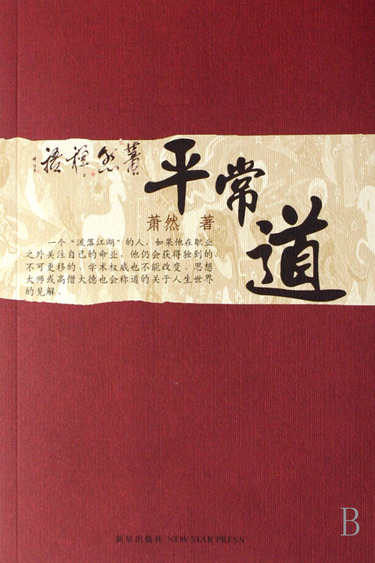 萧然禅语
平常道
萧然 著
一个“流落江湖”的人，如果他在职业
之外关注自己的命业，他仍会获得独到的、
不可更移的，学术权威也不能改变、思想
大师或高僧大德也会称道的关于人生世界
的见解。
新星出版社 NEW STAR PRESS
B